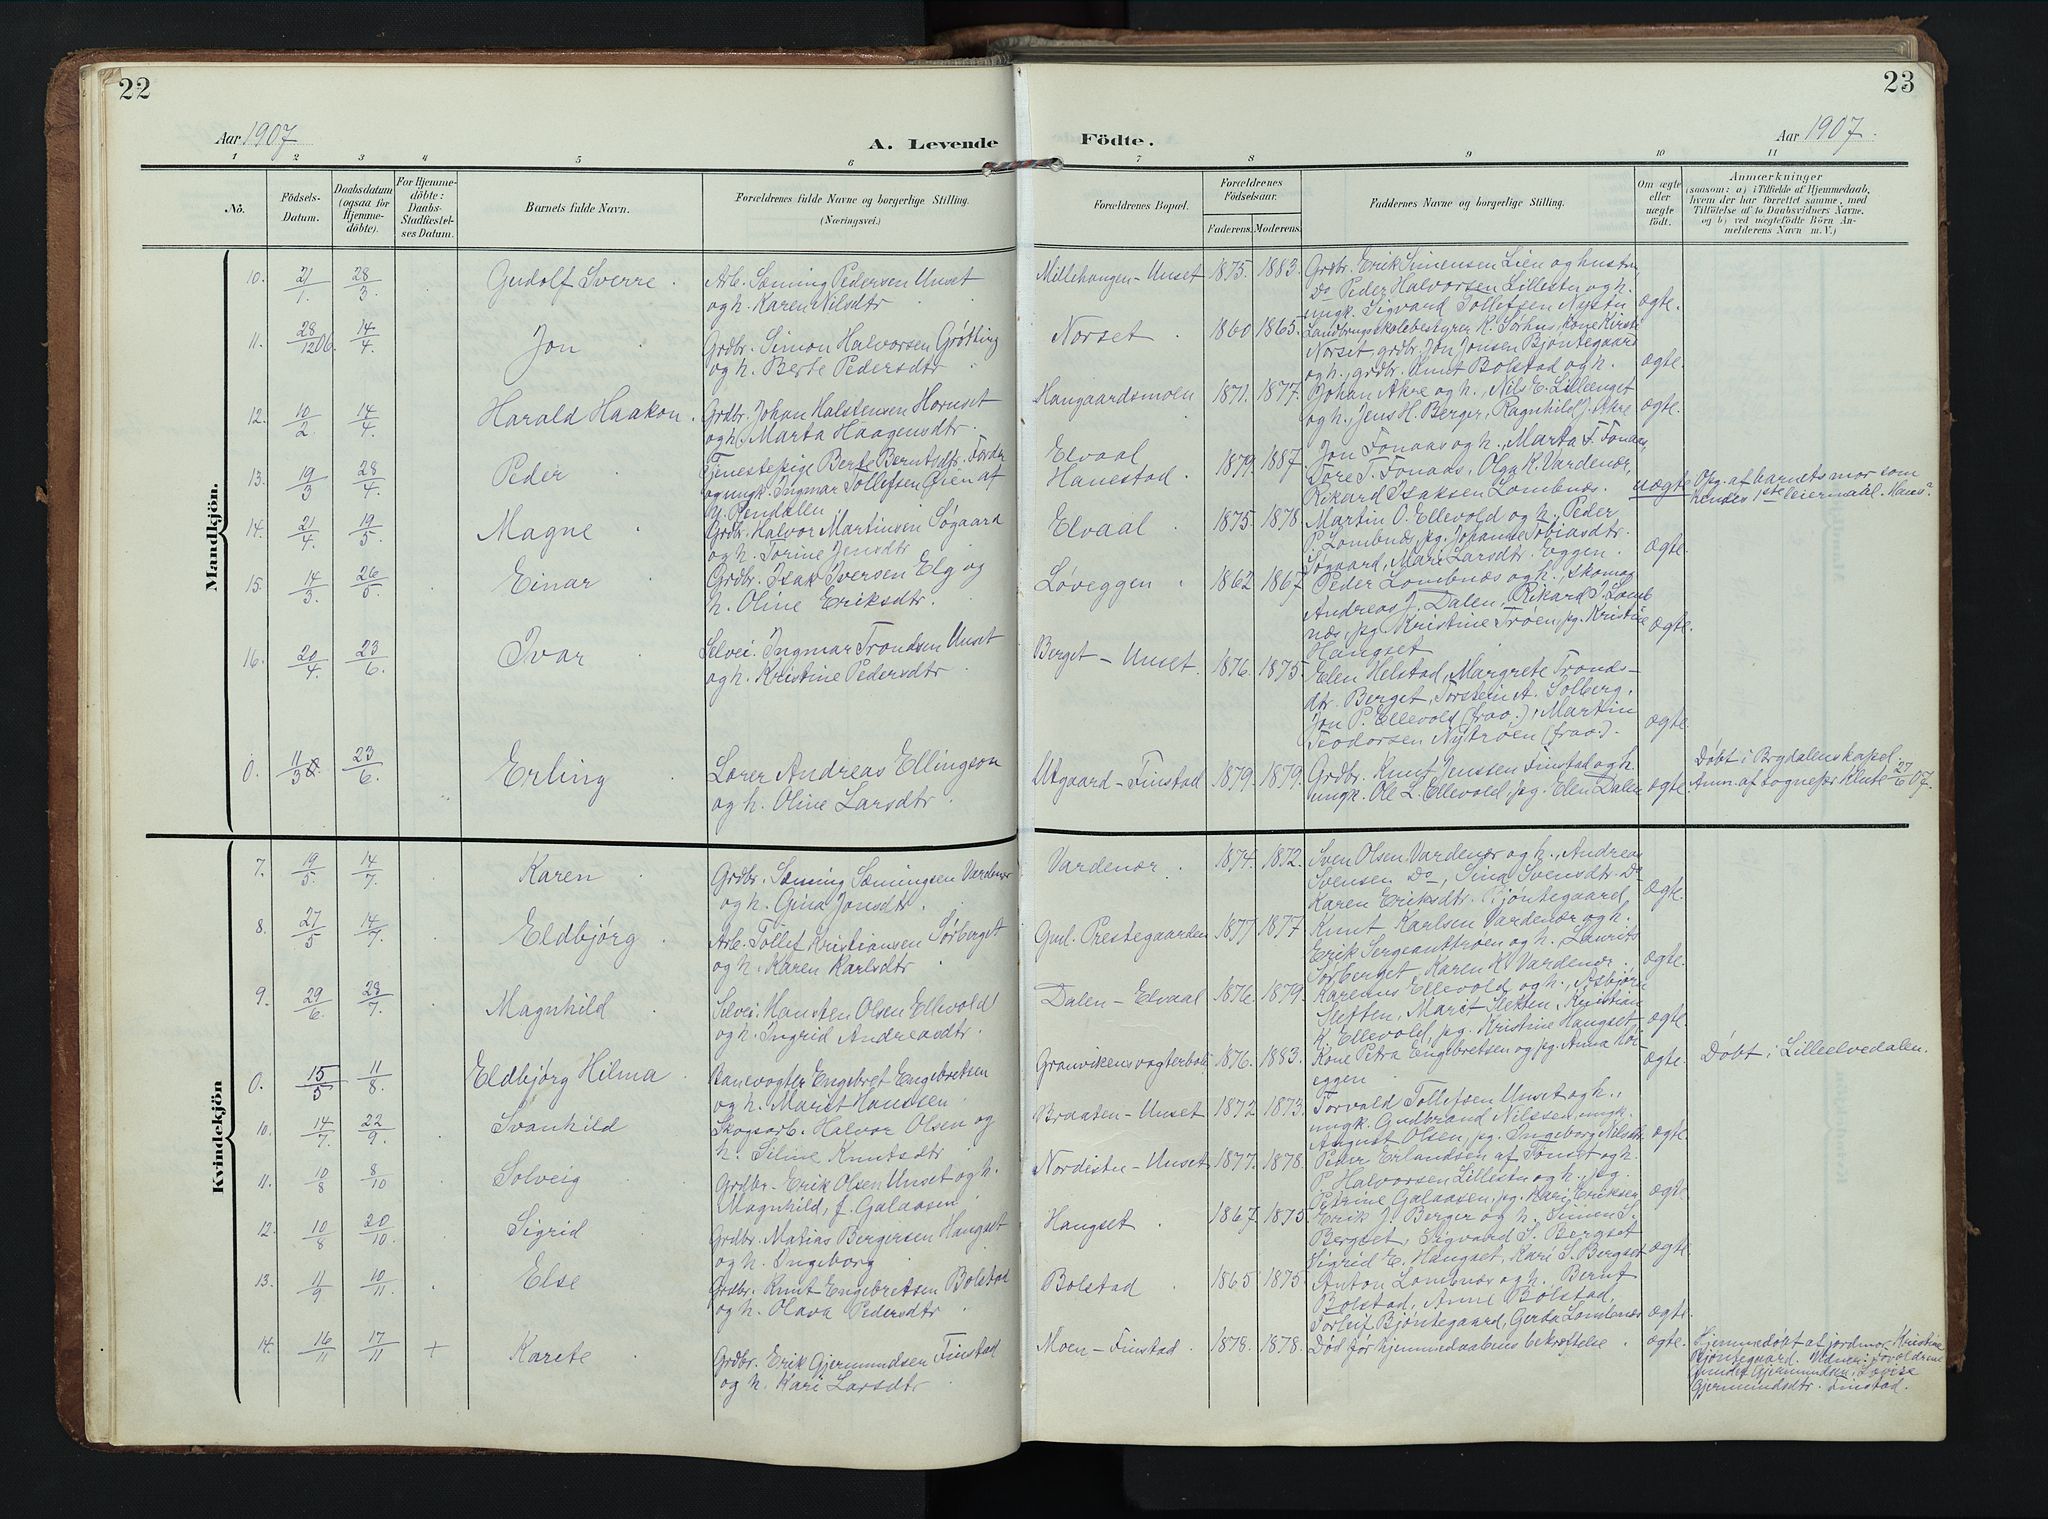 22
Aar 1907
A. Levende
1 2 3 4 5 6
No.
Födsels-
Datum.
Daabsdatum
(ogsaa for
Hjemme-
döbte).
For Hjemme-
döbte:
Daabs-
Stadfæstel-
ses Datum.
Barnets fulde Navn.
Forældrenes fulde Navne og borgerlige Stilling.
(Næringsvei.)
Mandkjön.
10. 21/1. 28/3 Gudolf Sverre. Arb. Sæming Pedersen Unset
og h. Karen Nilsdtr
11. 28/12 06. 14/4 Jon Grdbr. Simon Halvorsen Grøtting
og h. Berte Pedersdtr
12. 10/2. 14/4 Harald Haakon. Grdbr. Johan Halstensen Hornset
og h. Marta Haagensdtr.
13. 19/3 28/4. Peder Tjenestepige Berte Berntsdtr.
og ungk. Ingmar Tollefsen Øien af
Y. Rendalen
14. 21/4. 19/5. Magne Grdbr. Halvor Martinsen Søgaard
og h. Torine Jensdtr
15. 14/3. 26/5 Einar Grdbr. Isak Iversen Elg og
h. Oline Eriksdtr.
16. 20/4 23/6. Ivar Selvei. Ingmar Trondsen Unset
og h. Kristine Pedersdtr
0. 11/3 23/6. Erling Lærer Andreas Ellingson
og h. Oline Larsdtr
Kvindekjön
7. 19/5. 14/7. Karen Grdbr. Sæming Sæmingsen Vardenær
og h. Gina Jonsdtr.
8. 27/5 14/7. Eldbjörg. Arb. Tollef Kristiansen Sørberget
og h. Karen Karlsdtr
9. 29/6. 28/7. Magnhild Selvei. Hansten Olsen Ellevold
og h. Ingrid Andreasdtr.
0. 15/5 11/8. Eldbjørg Hilma Banevogter Engebret Engebretsen
og h. Marit Hanssen
10. 14/7. 22/9. Svanhild Skogsarb. Halvor Olsen og
h. Siline Knutsdtr
11. 10/8 8/10 Solveig Grdbr. Erik Olsen Unset og h.
Magnhild, f. Galaasen
12. 10/8 20/10. Sigrid Grdbr. Matias Bergersen Hangset
og h. Ingeborg
13. 11/9 10/11. Else Grdbr. Knut Engebretsen Bolstad
og h. Olava Pedersdtr
14. 16/11 17/11 + Karete Grdbr. Erik Gjermundsen Finstad
og h. Kari Larsdtr
23
Födte.
Aar 1907.
7 8 9 10 11
Forældrenes Bopæl.
Forældrenes
Födselsaar.
Faderens. Moderens.
Faddernes Navne og borgerlige Stilling.
Om ægte
eller
uægte
födt.
Anmærkninger
(saasom: a) i Tilfælde af Hjemmedaab,
hvem der har forrettet samme, med
Tilföielse af to Daabsvidners Navne,
og b) ved uægtefödte Börn An-
melderens Navn m. V.)
Millehaugen - Unset 1875. 1883. Grdbr. Erik Simensen Lien og hustru,
Do Peder Halvorsen Lillestu og h.
ungk. Sigvard Tollefsen Nystu ægte.
Norset 1860 1865. Landbrugsskolebestyrer K. Sørhus, kone Kirsti
Norset, grdbr. Jon Jonsen Bjøntegaard
og h., grdbr. Knut Bolstad og h. ægte.
Haugaardsmoen 1871. 1877. Johan Akre og h., Nils E. Lilleenget
og h., Jens H. Berger, Ragnhild J. Akre ægte.
Elvaal
Hanestad. 1879. 1887. Jon Fonaas og h., Marta T. Fonaas,
Tore T. Fonaas, Olga K. Vardenær,
Rikard Isaksen Lombnæs. uægte Opg. af barnets mor som
hendes 1ste leiermaal.
Elvaal 1875. 1878. Martin O. Ellevold og h., Peder
P. Lombnæs, pg. Johanne Tobiasdtr.
Søgaard, Mari Larsdtr. Eggen. ægte.
Løveggen 1862 1867 Peder Lombnæs og h., skomag.
Andreas J. Dalen, Rikard I. Lomb
næs, pg. Kristine Trøen, pg. Kristine
Hangset ægte.
Berget - Unset. 1876. 1875. Elen Helstad, Margrete Tronds-
dtr. Berget, Torstein A. Solberg,
Jon P. Ellevold (frav.), Martin
Teodorsen Nytrøen (frav.). ægte
Utgaard - Finstad 1879. 1879. Grdbr. Knut Jenssen Finstad og h.
ungk. Ole L. Ellevold, pg. Elen Dalen ægte. Døbt i Brydalens kapel
Anm. af sognepr. Klute 27/6 07.
Vardenær. 1874. 1872. Sven Olsen Vardenær og h., Andreas
Svensen Do, Sina Svensdtr. Do
Karen Eriksdtr. Bjøntegaard ægte.
Gml. Prestegaarden 1877 1877 Knut Karlsen Vardenær og h.
Erik Sergeanttrøen og h. Laurits
Sørberget, Karen K. Vardenær. ægte.
Dalen - Elvaal 1876. 1879. Karenus Ellevold og h., Asbjørn
Sletten, Marit Sletten, Kristian
K. Ellevold, pg. Kristine Hangset ægte.
Granvikens vogterbolig 1876. 1883. Kone Petra Engebretsen og pg. Anna Løv
eggen ægte. Døbt i Lilleelvedalen.
Braaten - Unset 1872 1873. Torvald Tollefsen Unset og h.,
ungk. Gudbrand Nilssen, ungk.
August Olsen, pg. Ingeborg Nilsdtr. ægte.
Nordistu - Unset 1877. 1878. Peder Erlandsen af Tønset og h.
P. Halvorsen Lillestu og h. pg.
Petrine Galaasen, pg. Kari Eriksen ægte.
Hangset 1867. 1875 Erik J. Berger og h. Simen S.
Bergset, Sigvard S. Bergset
Sigrid E. Hangset, Kari S. Bergset ægte.
Bolstad 1865 1875 Anton Lombnæs og h. Bernt
Bolstad, Anne Bolstad,
Torleif Bjøntegaard, Gerda Lombnæs ægte.
Moen - Finstad. 1878. 1878. Død før hjemmedaabens bekræftelse. ægte. Hjemmedøbt af jordmor Kristine
Bjøntegaard. Vidner: Forældrene
Gjermundsen, Lovise
Gjermundsdtr. Finstad.